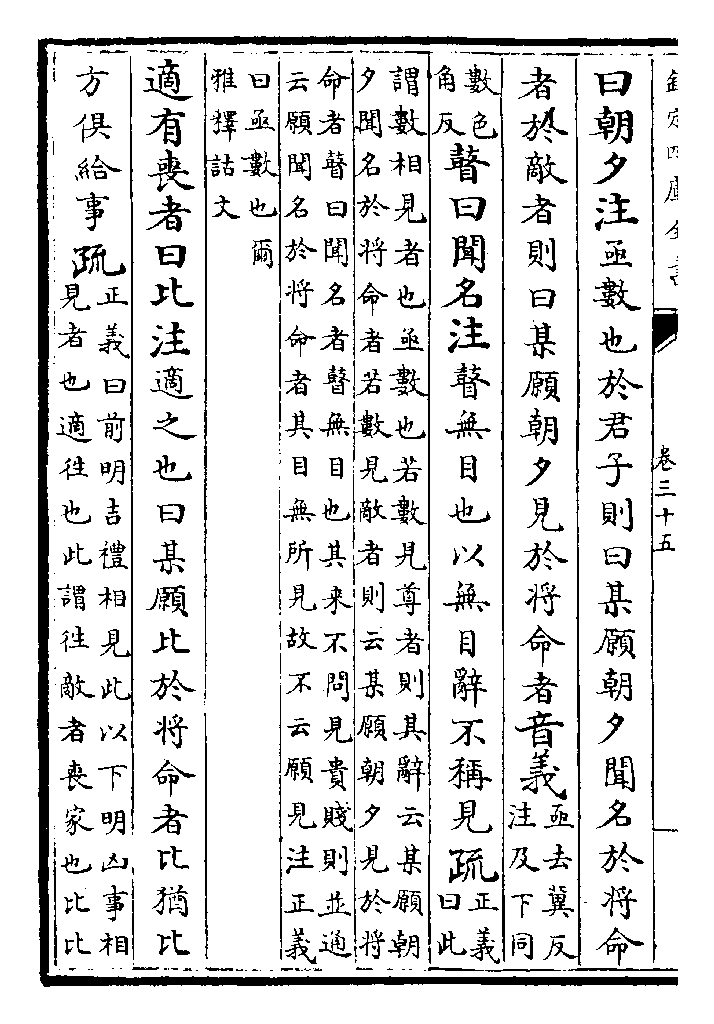 欽定四庫全書
卷三十五
曰朝夕注亟數也於君子則曰某願朝夕聞名於將命
者於敵者則曰某願朝夕見於將命者音義亟去冀反
注及下同
數色
角反瞽曰聞名注瞽無目也以無目辭不稱見疏正義
曰此
謂數相見者也亟數也若數見尊者則其辭云某願朝
夕聞名於將命者若數見敵者則云某願朝夕見於將
命者瞽曰聞名者瞽無目也其来不問見貴賤則並通
云願聞名於將命者其目無所見故不云願見注正義
曰亟數也爾
雅釋詁文
適有喪者曰比注適之也曰某願比於將命者比猶比
方俱給事疏正義曰前明吉禮相見此以下明凶事相
見者也適徃也此謂徃敵者喪家也比比